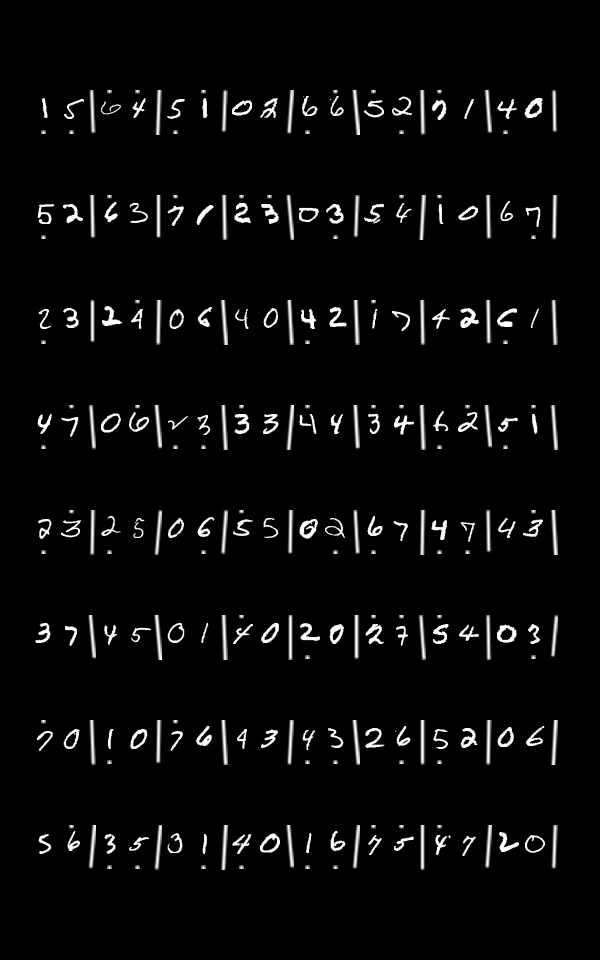 1 5 | 6 4 | 5 1 | 0 2 | 6 6 | 5 2 | 7 1 | 4 0 |
5 2 | 6 3 | 7 1 | 2 3 | 0 3 | 5 4 | 1 0 | 6 7 |
2 3 | 2 4 | 0 6 | 4 0 | 4 2 | 1 7 | 4 2 | 6 1 |
4 7 | 0 6 | 2 3 | 3 3 | 4 4 | 3 4 | 6 2 | 5 1 |
2 3 | 2 5 | 0 6 | 5 5 | 0 2 | 6 7 | 4 7 | 4 3 |
3 7 | 4 5 | 0 1 | 4 0 | 2 0 | 2 7 | 5 4 | 0 3 |
7 0 | 1 0 | 7 6 | 4 3 | 4 3 | 2 6 | 5 2 | 0 6 |
5 6 | 3 5 | 0 1 | 4 0 | 1 6 | 7 5 | 4 7 | 2 0 |